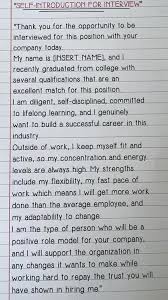 "SELF-INTRODUCTION FOR INTERVIEW"
"Thank you for the opportunity to be
interviewed for this position with your
company today.
My name is (INSERT NAME), and I
recently graduated from college with
several qualifications that are an
excellent match for this position.
I am diligent, self-disciplined, committed
to lifelong learning, and I genuinely
want to build a successful career in this
industry.
Outside of work, I keep myself fit and
active, so my concentration and energy
levels are always high. My strengths
include my flexibility, my fast pace of
work which means I will get more work
done than the average employee, and
my adaptability to change.
I am the type of person who will be a
positive role model for your company,
and I will support the organization in
any changes it wants to make while
working hard to repay the trust you will
have shown in hiring me"